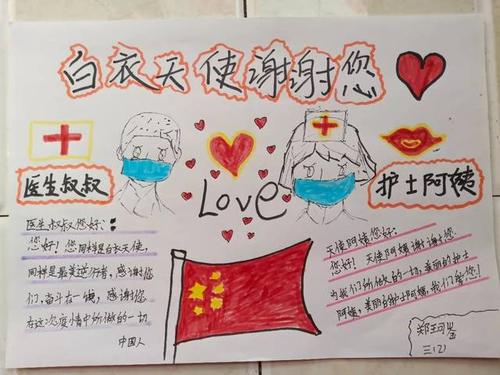 白衣天使谢谢您
医生叔叔
Love
护士阿姨
医生叔叔您好:
您好!您同样是白衣天使,
同样是最美逆行者,感谢您
们,奋斗在一线,感谢您
在这次疫情中所做的一切.
中国人
天使阿姨您好:
您好!天使阿姨谢谢您
为我们所做的一切,美丽的护士
阿姨,美丽的护士阿姨,我们爱您!
三(2)